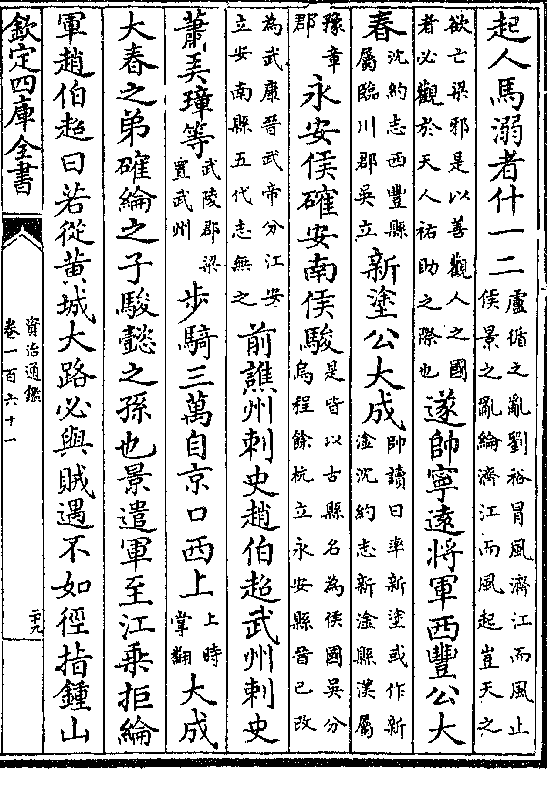 起人馬溺者什一二
盧循之亂劉裕冒風濟江而風止
侯景之亂綸濟江而風起豈天之
欲亡梁邪是以善觀人之國
者必觀於天人祐助之際也
遂帥寧遠將軍西豐公大
春
沈約志西豐縣
屬臨川郡吳立
新塗公大成
帥讀曰率新塗或作新
淦沈約志新淦縣漢屬
豫章
郡
永安侯確安南侯駿
是皆以古縣名為侯國吳分
烏程餘杭立永安縣晉已改
為武康晉武帝分江安
立安南縣五代志無之
前譙州刺史趙伯超武州刺史
蕭弄璋等
武陵郡梁
置武州
步騎三萬自京口西上
上時
掌翻
大成
大春之弟確綸之子駿懿之孫也景遣軍至江乘拒綸
軍趙伯超曰若從黃城大路必與賊遇不如徑指鍾山
欽定四庫全書
資治通鑑
卷一百六十一
二十九